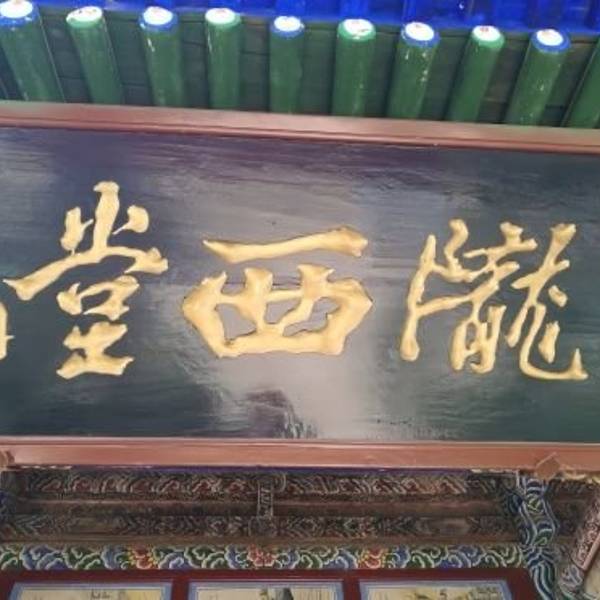 隴西堂